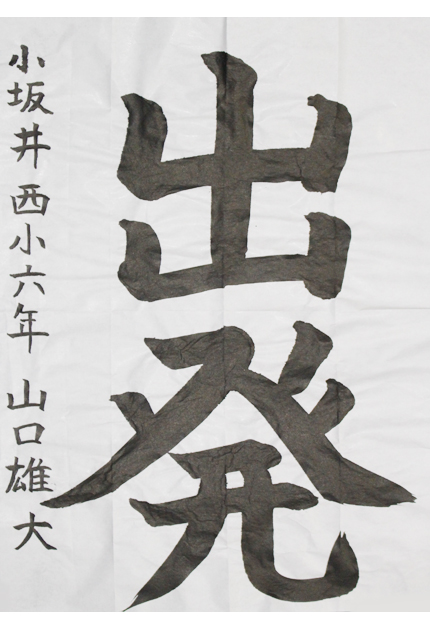 出発
小坂井西小六年 山口雄大